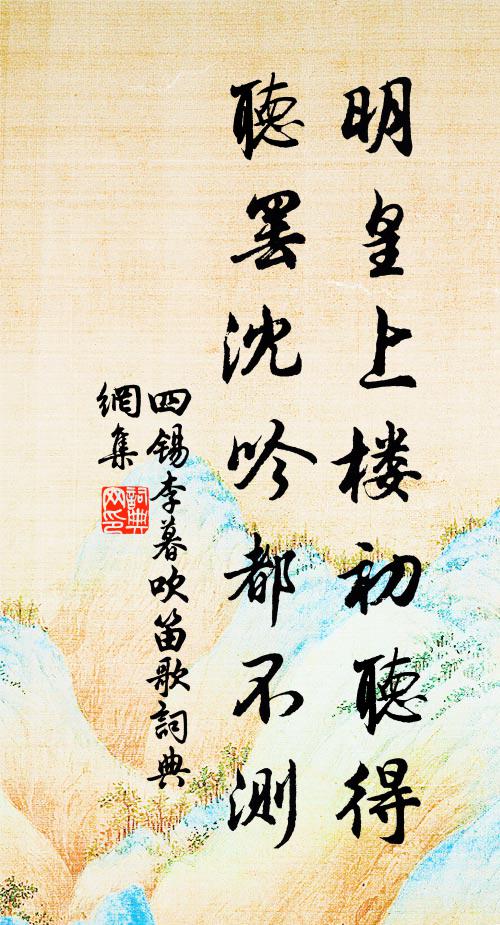 明皇上楼初聽得
聽罢沈吟都不测
四锡李暮吹笛歌詞典
網集
詞典
网印